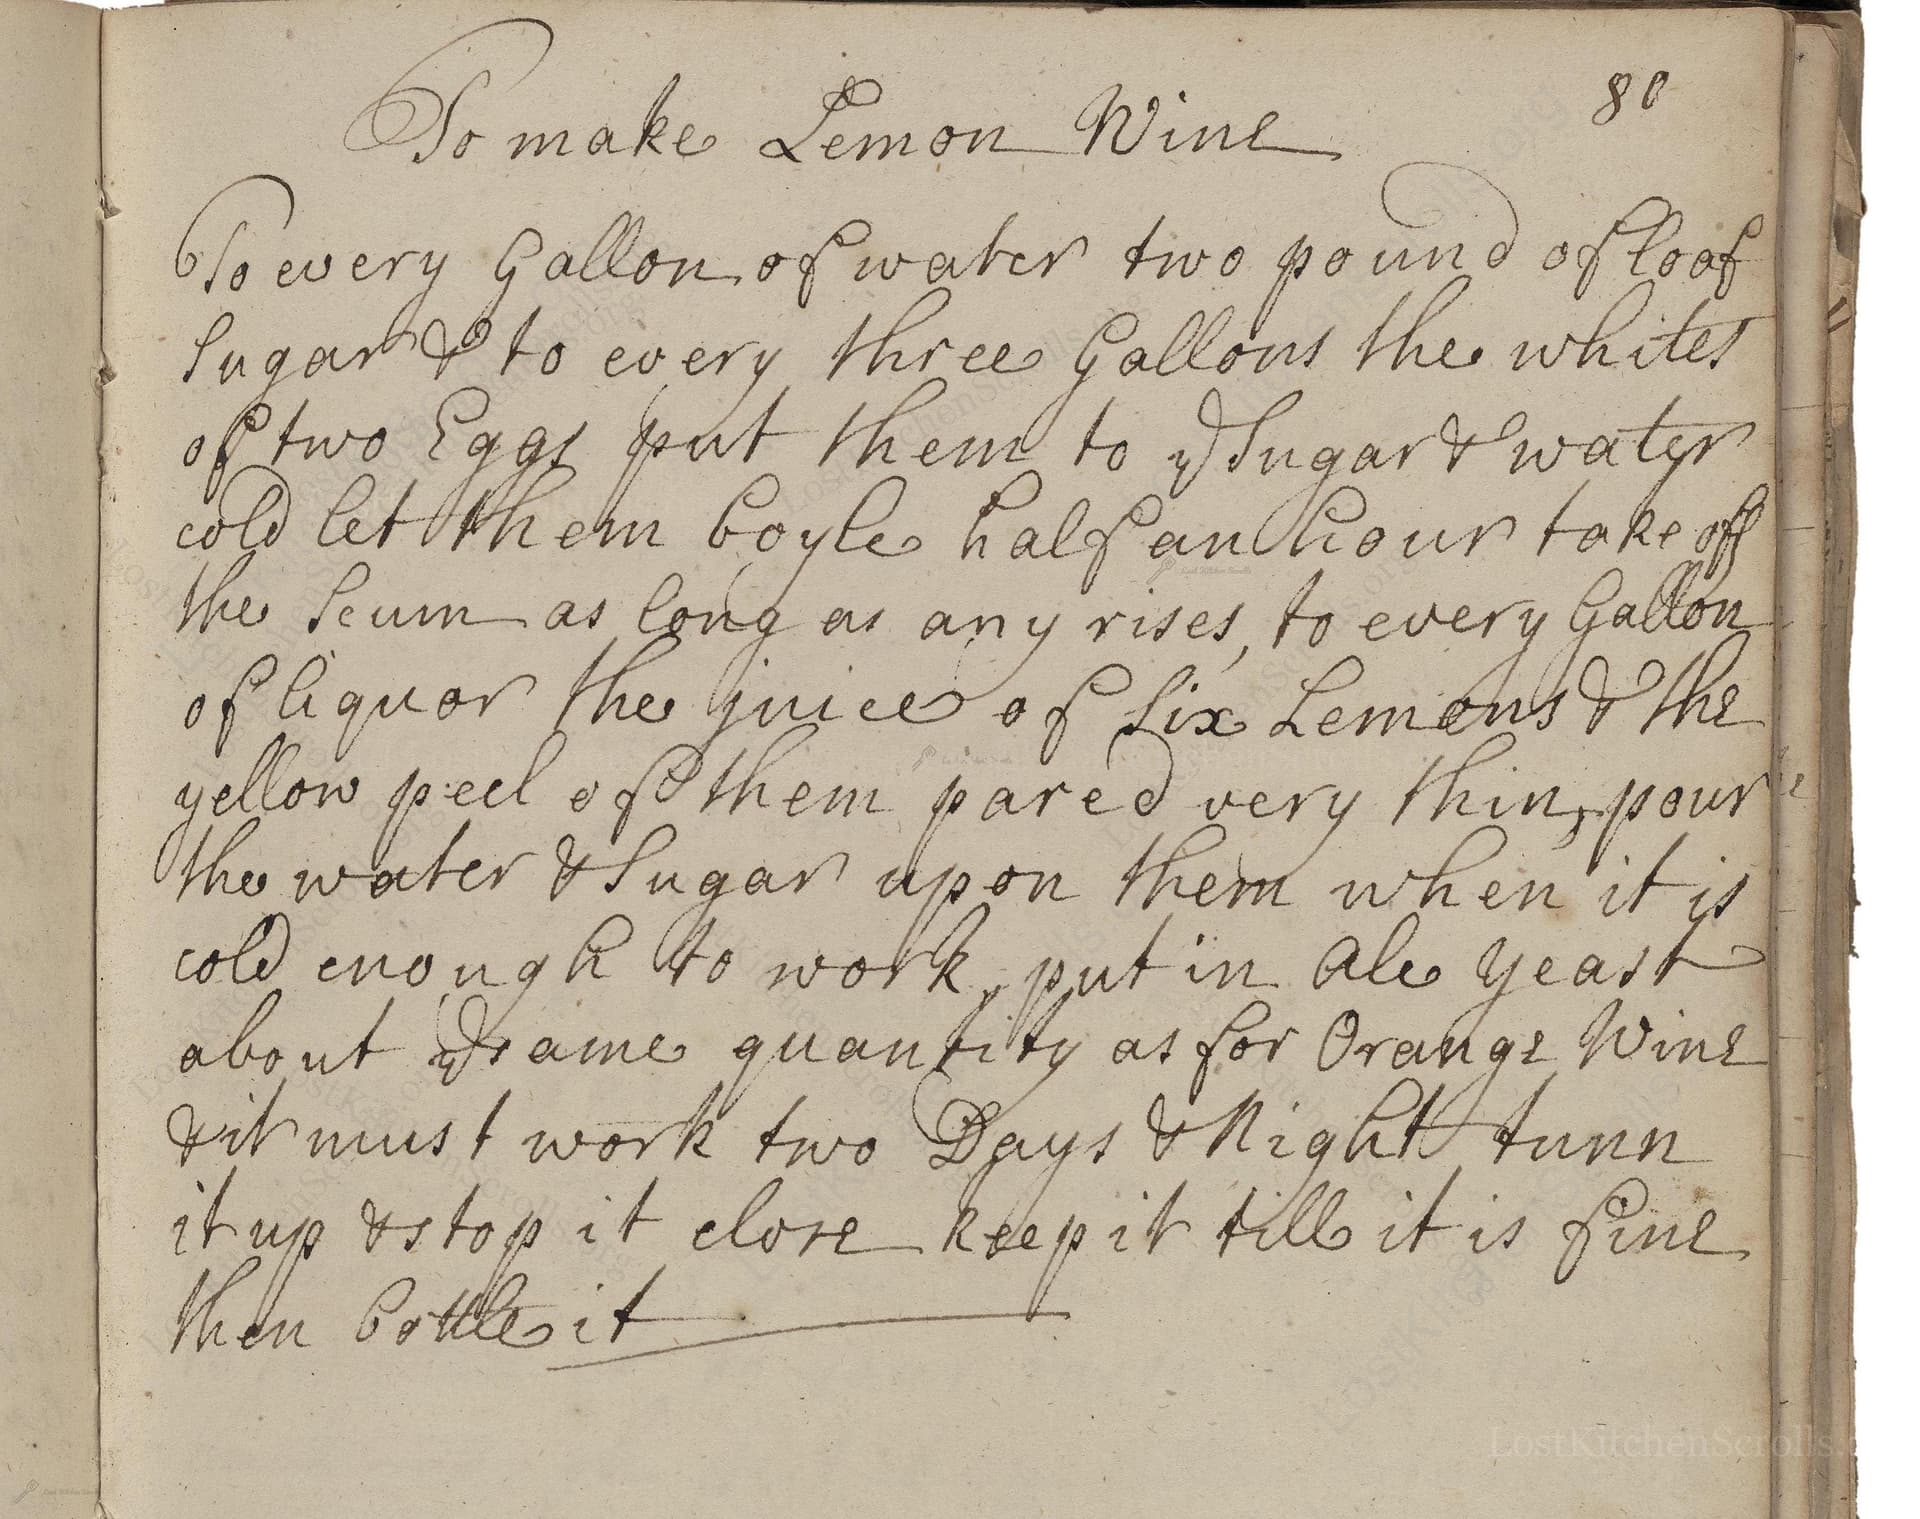 80
To make Lemon Wine
To every Gallon of water two pound of loaf
Sugar & to every three Gallons the whites
of two Eggs put them to ye Sugar & water
cold let them boyle half an hour take off
the Scum as long as any rises, to every Gallon
of liquor the juice of Six Lemons & the
yellow peel of them pared very thin, pour
the water & Sugar upon them when it is
cold enough to work, put in Ale Yeast
about ye same quantity as for Orange Wine
& it must work two Days & Night tunn
it up & stop it close keep it till it is fine
then bottle it
LostKitchenScrolls